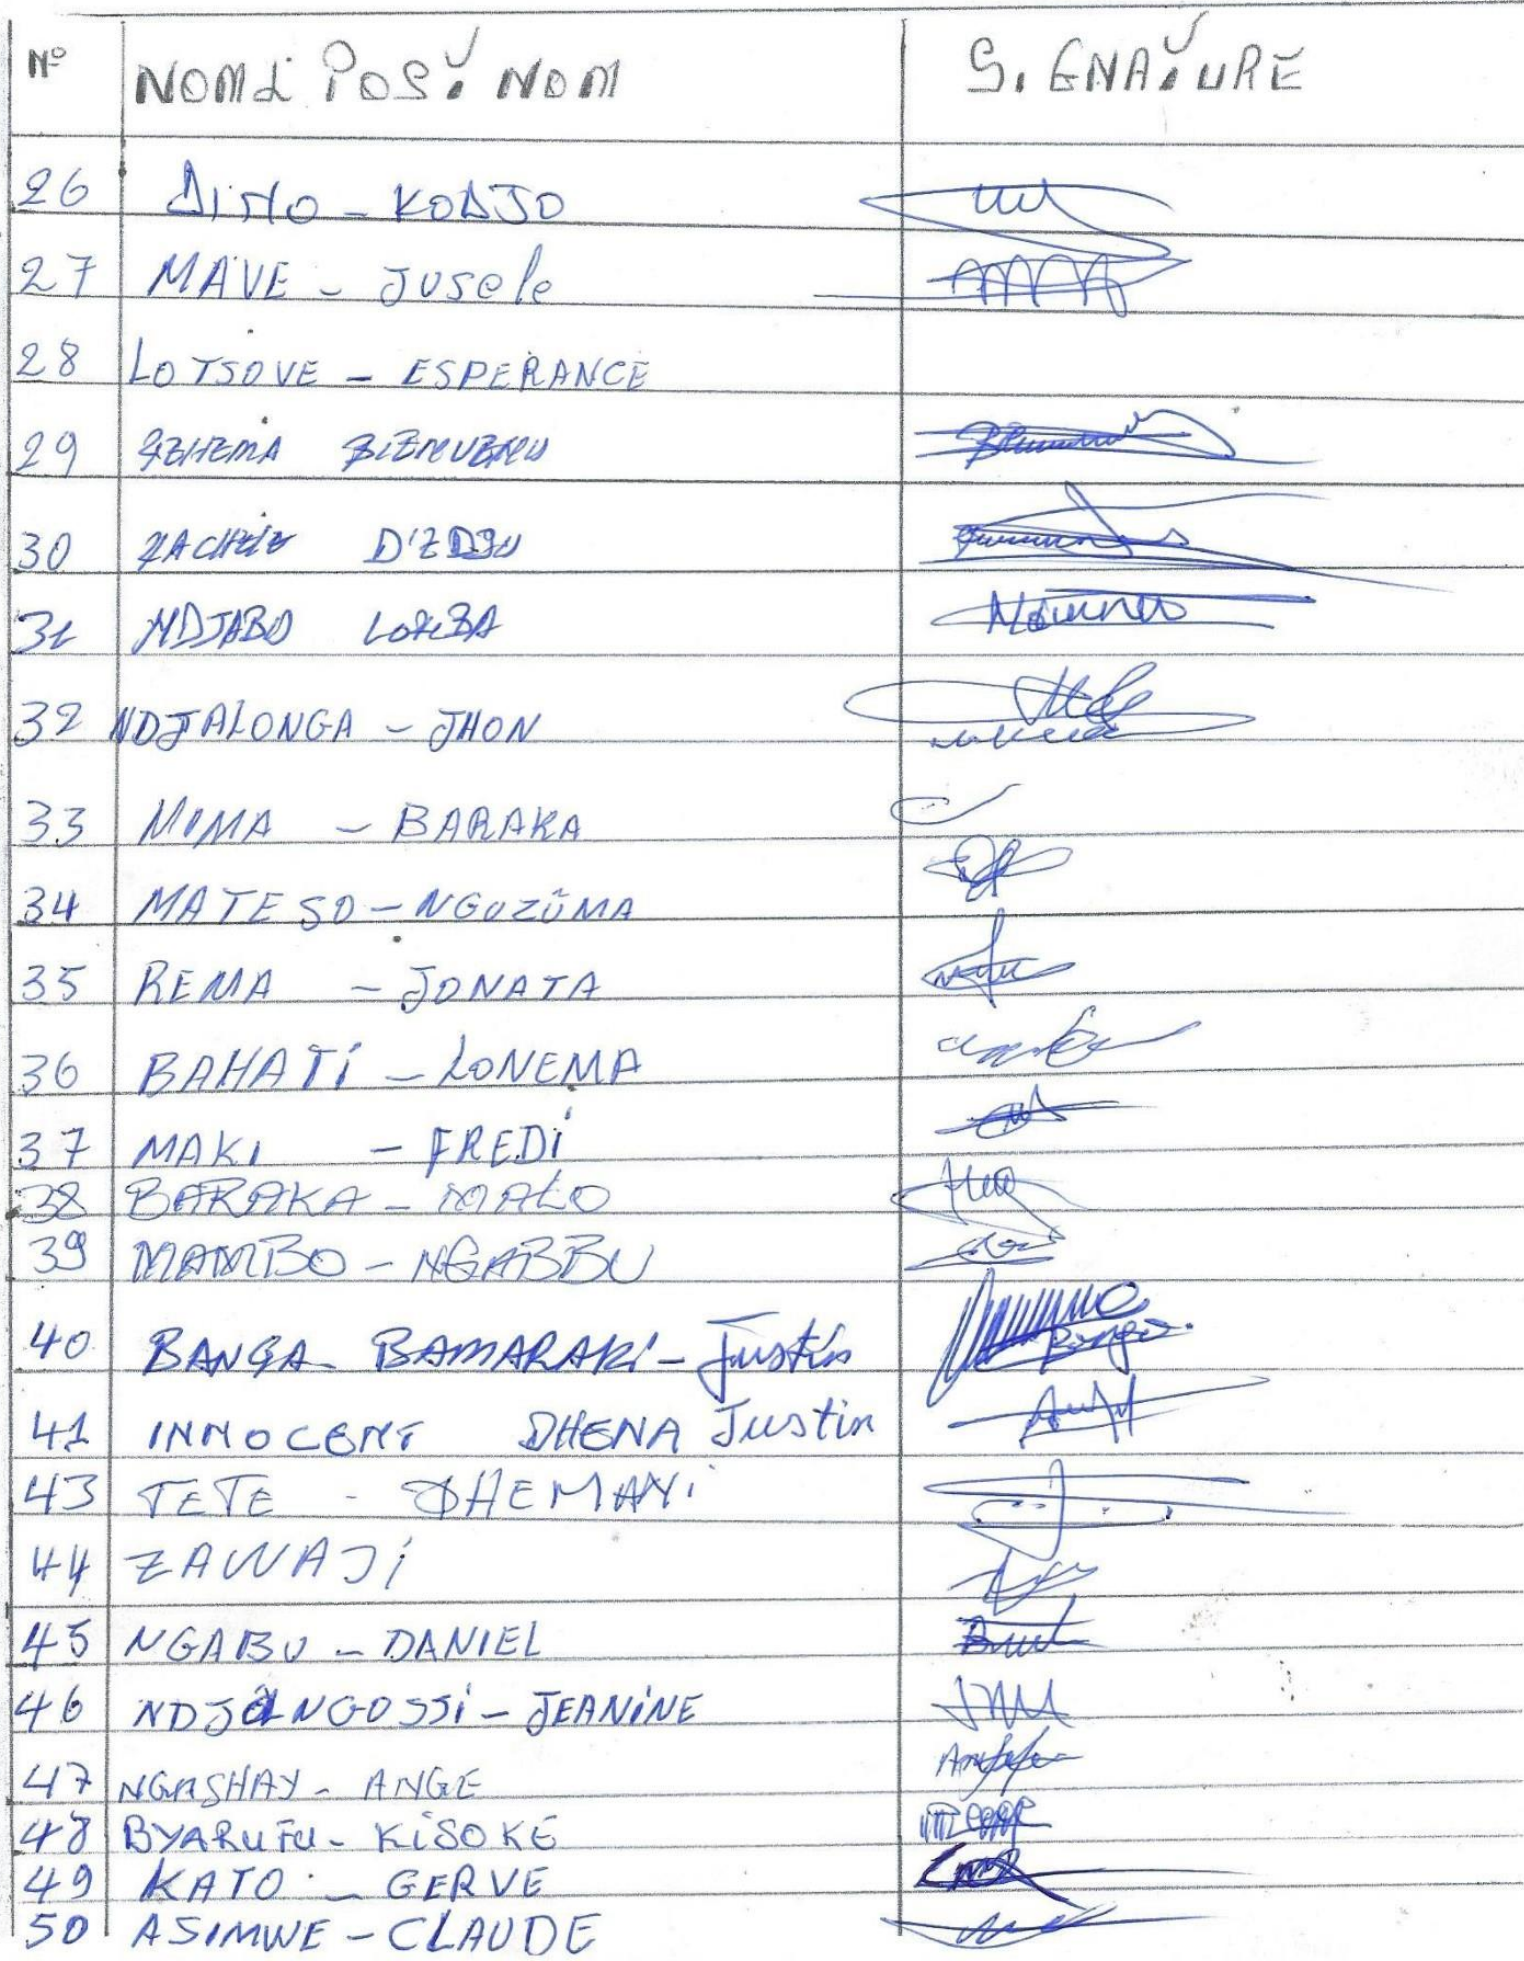 N° NOM & POST.NOM SIGNATURE
26 DINO - KODJO
27 MAVE - JUSELE
28 LOTSOVE - ESPERANCE
29 BIENVENU
30 ZACHEE D'ZDJU
31 NDJABO LOKBA
32 NDJALONGA - JHON
33 MUMA - BARAKA
34 MATESO - NGUZUMA
35 REMA - JONATA
36 BAHATI - LONEMA
37 MAKI - FREDI
38 BARAKA - MALO
39 MAMBO - NGABBU
40 BANGA BAMARAKI - Justin Banga.
41 INNOCENT DHENA Justin
43 TETE - DHEMAYI
44 ZAWADI
45 NGABU - DANIEL
46 NDJANGOSSI - JEANINE
47 NGASHAY - ANGE
48 BYARUFU - KISOKE
49 KATO - GERVE
50 ASIMWE - CLAUDE